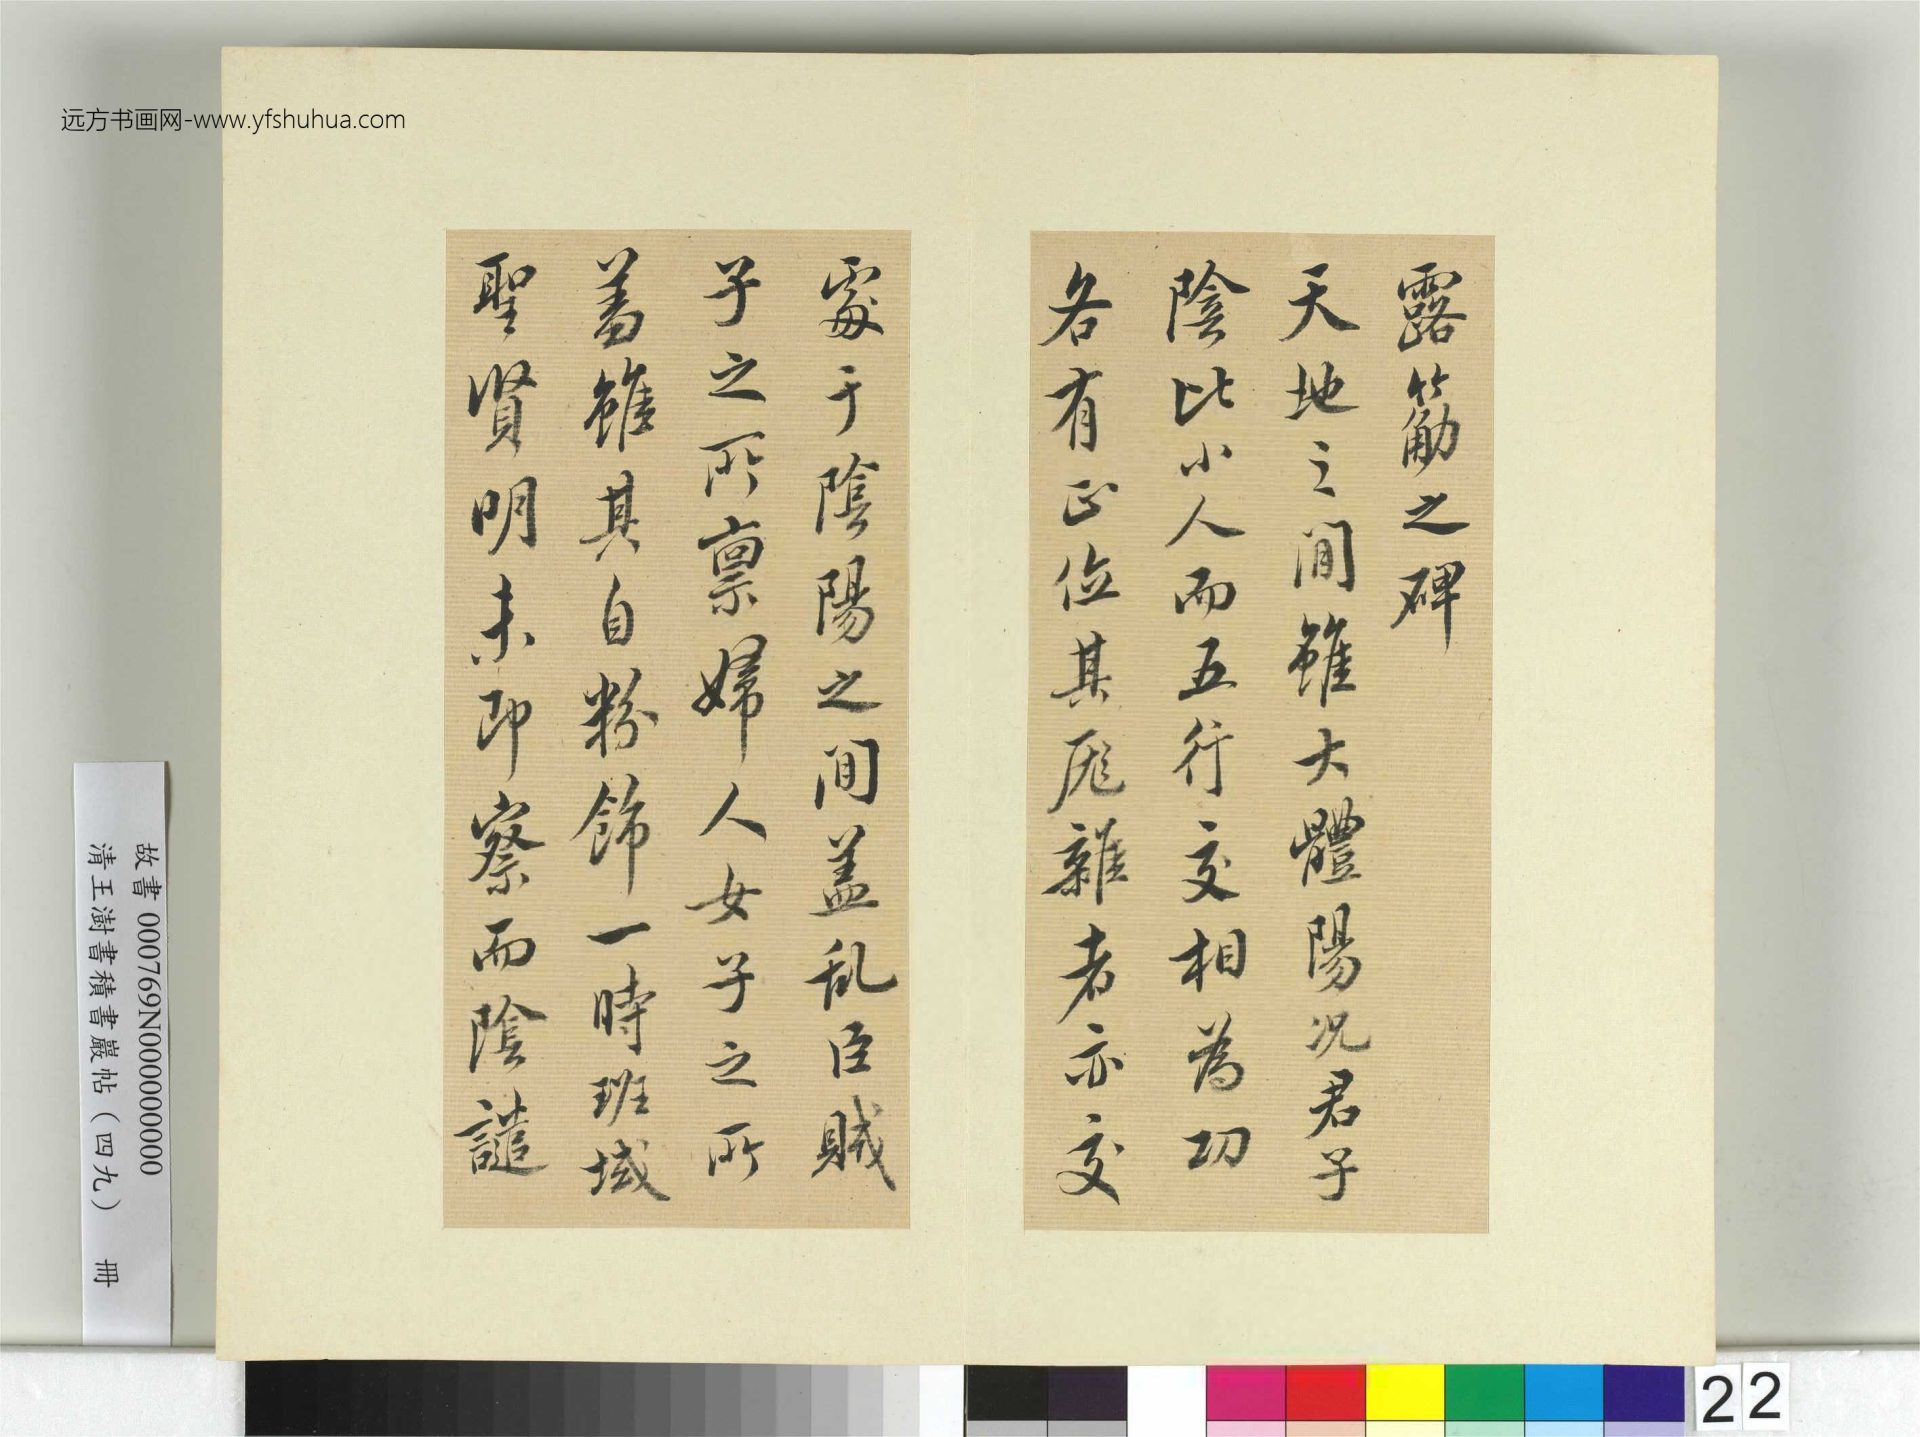 远方书画网-www.yfshuhua.com
露筋之碑
天地之間雖大體陽況君子
陰比小人而五行交相為功
各有正位其厖雜者亦交
處于陰陽之間盖乱臣賊
子之所禀婦人女子之所
羞雖其自粉飾一時班域
聖賢明未即察而陰譴
故書 000769N000000000
清王澍書積書巖帖(四九) 冊
22